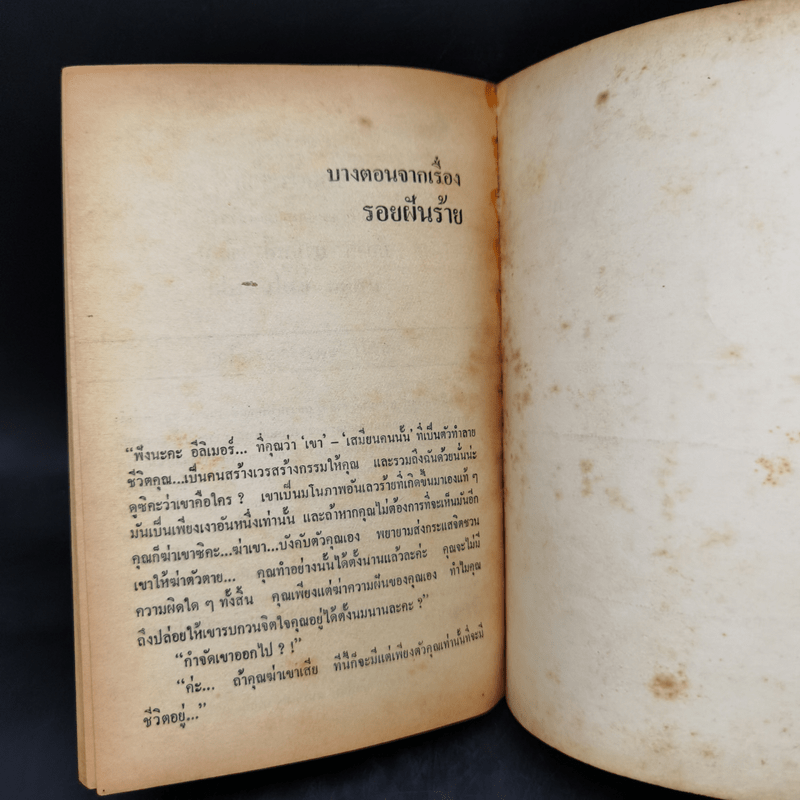 บางตอนจากเรื่อง
รอยฝันร้าย
“พึงนะคะ อีลิเมอร์... ที่คุณว่า ‘เขา’ – ‘เสมียนคนนั้น’ ที่เป็นตัวทำลาย
ชีวิตคุณ...เป็นคนสร้างเวรสร้างกรรมให้คุณ และรวมถึงฉันด้วยนั่นน่ะ
ดูซิคะว่าเขาคือใคร ? เขาเป็นมโนภาพอันเลวร้ายที่เกิดขึ้นมาเองแท้ ๆ
มันเป็นเพียงเงาอันหนึ่งเท่านั้น และถ้าหากคุณไม่ต้องการที่จะเห็นมันอีก
คุณก็ฆ่าเขาซิคะ...ฆ่าเขา...บังคับตัวคุณเอง พยายามส่งกระแสจิตชวน
เขาให้ฆ่าตัวตาย... คุณทำอย่างนั้นได้ตั้งนานแล้วละค่ะ คุณจะไม่มี
ความผิดใด ๆ ทั้งสิ้น คุณเพียงแต่ฆ่าความฝันของคุณเอง ทำไมคุณ
ถึงปล่อยให้เขารบกวนจิตใจคุณอยู่ได้ตั้งนมนานละคะ ?”
“กำจัดเขาออกไป ? !”
“ค่ะ... ถ้าคุณฆ่าเขาเสีย ทีนี้ก็จะมีแต่เพียงตัวคุณเท่านั้นที่จะมี
ชีวิตอยู่...”